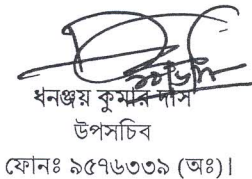 ধনঞ্জয় কুমার দাস
উপসচিব
ফোনঃ ৯৫৭৬৩৩৯ (অঃ)।